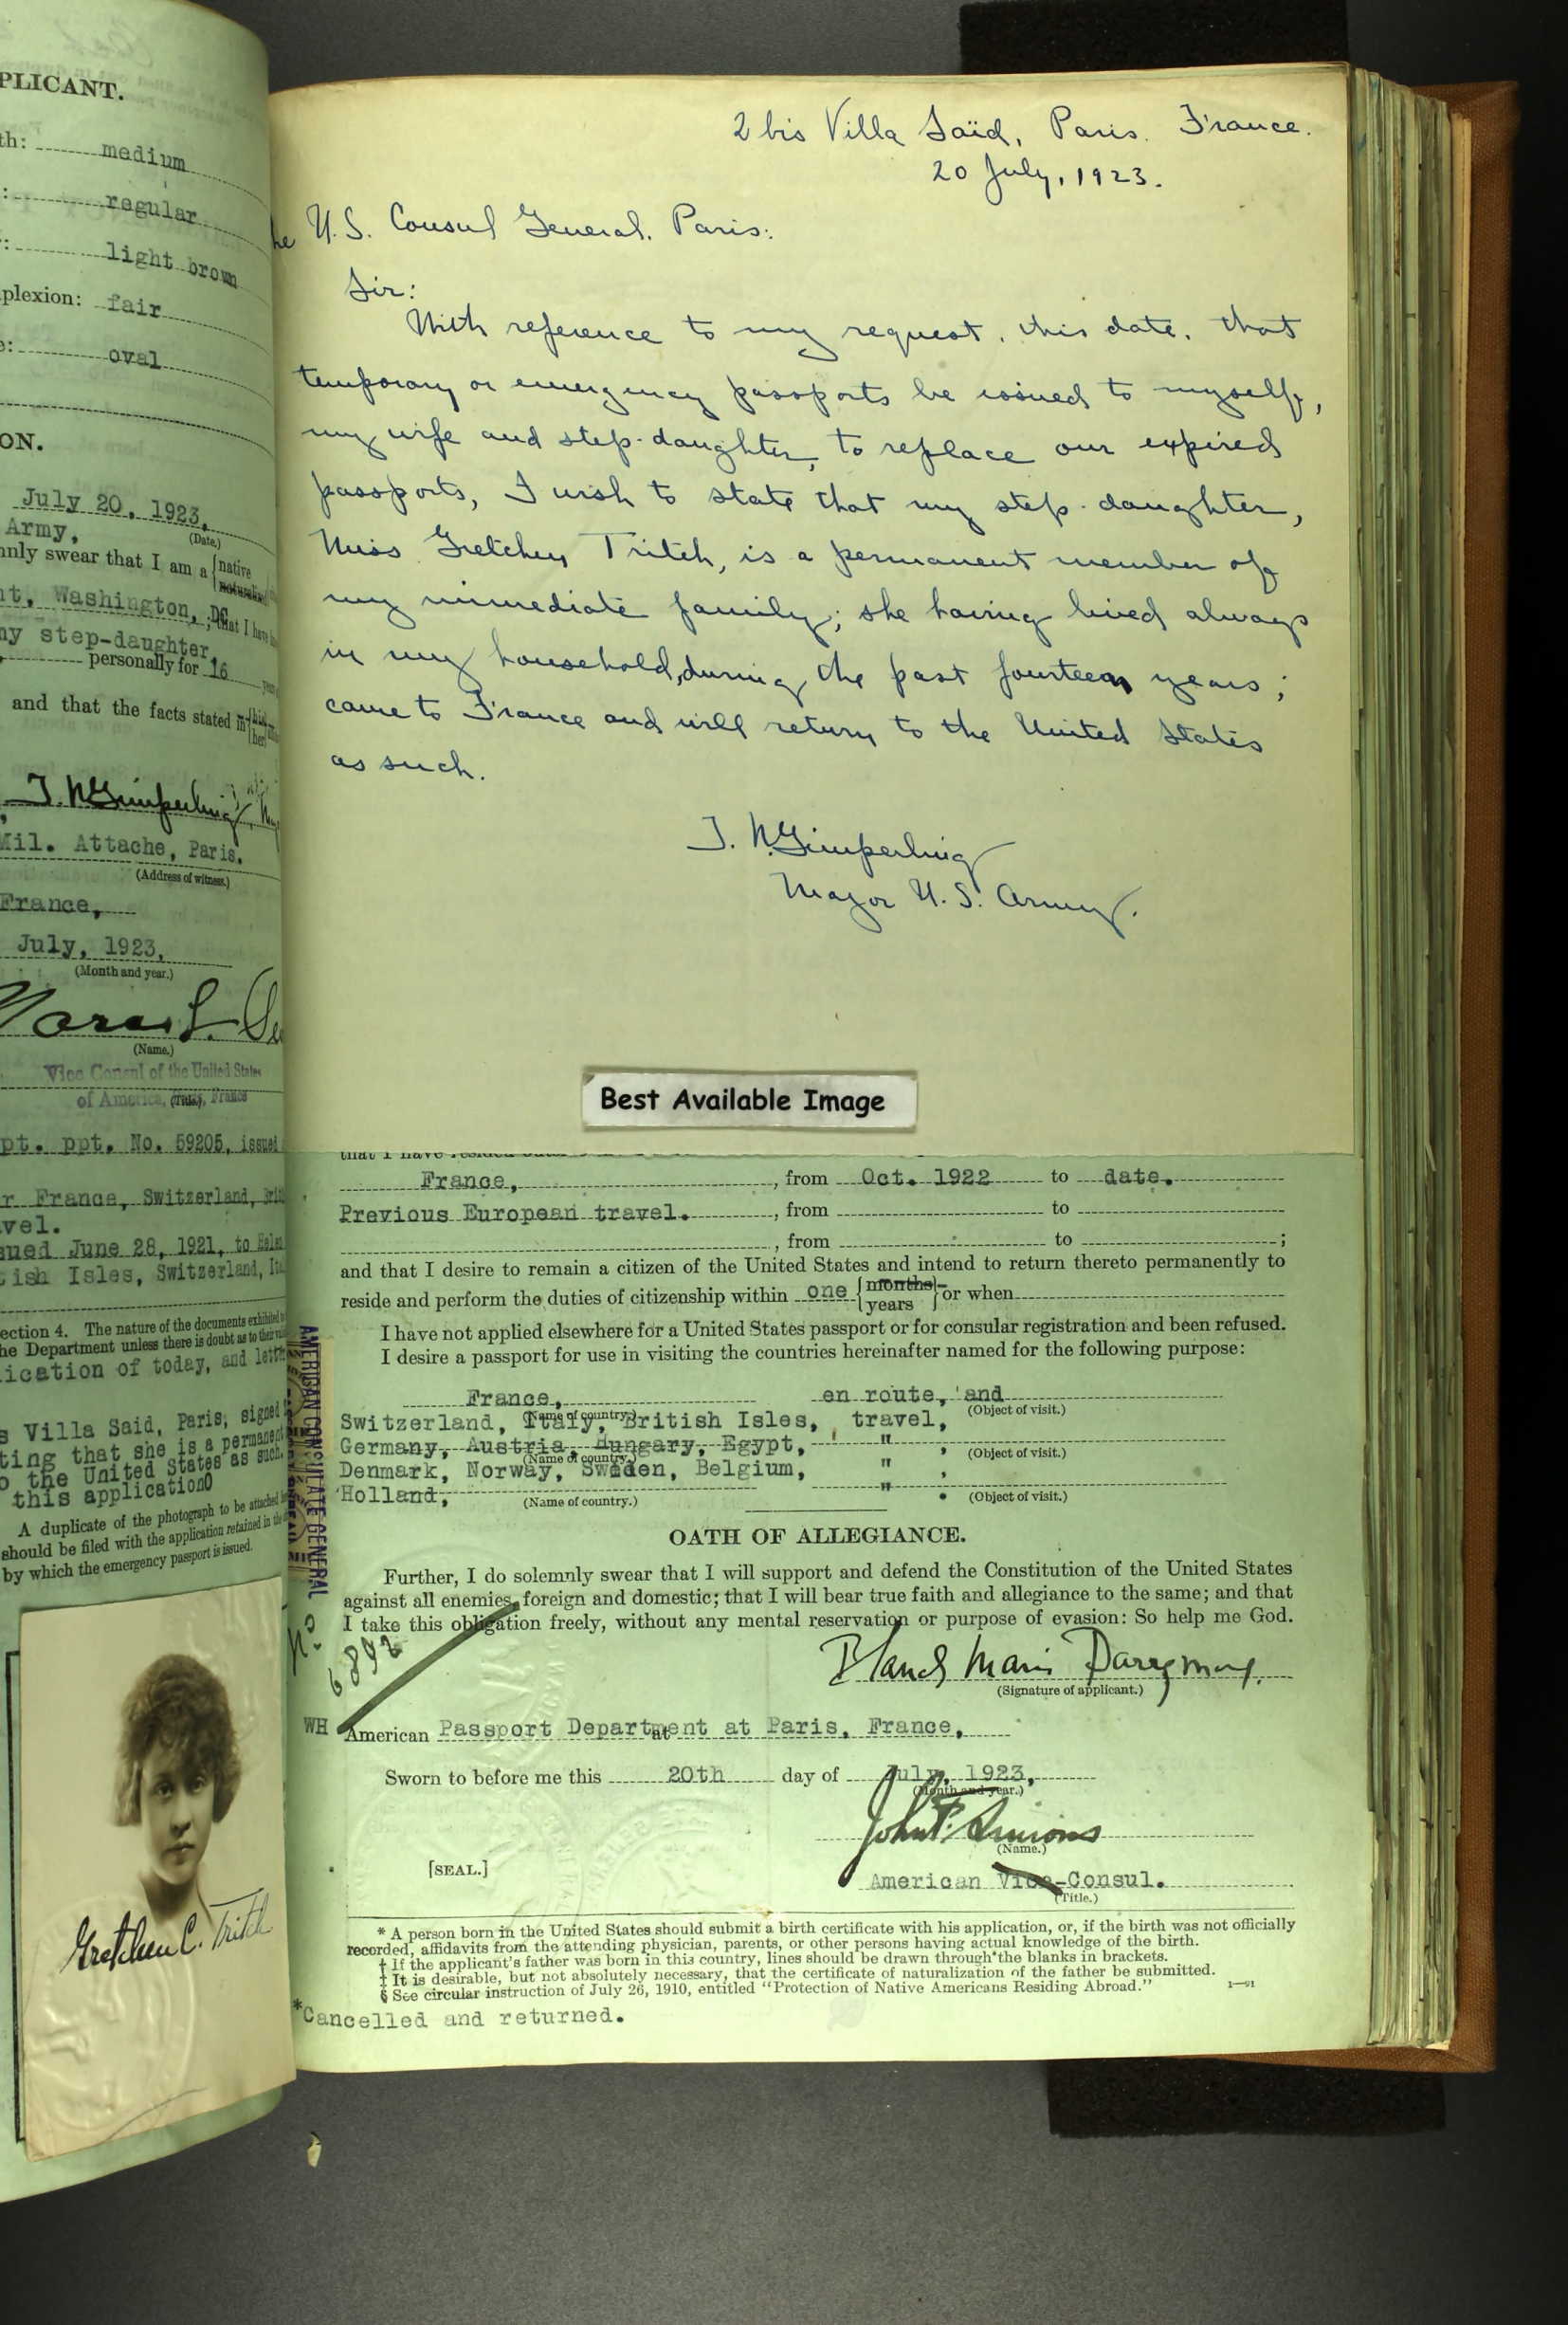 PLICANT.
th: medium
: regular
: light brown
plexion: fair
e: oval
ON.
July 20, 1923,
(Date.)
Army,
nly swear that I am a {native
nt, Washington, DC
; that I have
my step-daughter,
personally for 16
and that the facts stated in {his
her}
T. N. Gimperling,
Mil. Attache, Paris.
(Address of witness.)
France,
July, 1923,
(Month and year.)
(Name.)
Vice Consul of the United States
of America, Paris, France
(Title.)
pt. ppt. No. 59205, issued
r France, Switzerland,
vel.
sued June 28, 1921, to Helen
tish Isles, Switzerland,
ection 4. The nature of the documents exhibited
he Department unless there is doubt as to their
ication of today, and
s Villa Said, Paris, signed
ting that she is a permanent
o the United States as such.
this application0
A duplicate of the photograph to be attached
should be filed with the application retained in the
by which the emergency passport is issued.
Gretchen C. Tritch
2 bis Villa Saïd, Paris. France.
20 July, 1923.
he U.S. Consul General. Paris:
Sir:
With reference to my request, this date, that
temporary or emergency passports be issued to myself,
my wife and step-daughter, to replace our expired
passports, I wish to state that my step-daughter,
Miss Gretchen Tritch, is a permanent member of
my immediate family; she having lived always
in my household, during the past fourteen years;
came to France and will return to the United States
as such.
T. N. Gimperling
Major U.S. Army.
Best Available Image
that I have resided
France, , from Oct. 1922 to date.
Previous European travel. , from to
, from to ;
and that I desire to remain a citizen of the United States and intend to return thereto permanently to
reside and perform the duties of citizenship within one {months years} or when
I have not applied elsewhere for a United States passport or for consular registration and been refused.
I desire a passport for use in visiting the countries hereinafter named for the following purpose:
France, en route, and
(Name of country.) (Object of visit.)
Switzerland, Italy, British Isles, travel,
Germany, Austria, Hungary, Egypt, " ,
(Name of country.) (Object of visit.)
Denmark, Norway, Sweden, Belgium, " ,
Holland, " .
(Name of country.) (Object of visit.)
OATH OF ALLEGIANCE.
Further, I do solemnly swear that I will support and defend the Constitution of the United States
against all enemies, foreign and domestic; that I will bear true faith and allegiance to the same; and that
I take this obligation freely, without any mental reservation or purpose of evasion: So help me God.
(Signature of applicant.)
AMERICAN CONSULATE GENERAL
No
WH
American Passport Department at Paris, France,
at
Sworn to before me this 20th day of July, 1923,
(Month and year.)
(Name.)
[SEAL.]
American Vice-Consul.
(Title.)
* A person born in the United States should submit a birth certificate with his application, or, if the birth was not officially
recorded, affidavits from the attending physician, parents, or other persons having actual knowledge of the birth.
† If the applicant's father was born in this country, lines should be drawn through the blanks in brackets.
‡ It is desirable, but not absolutely necessary, that the certificate of naturalization of the father be submitted.
§ See circular instruction of July 26, 1910, entitled "Protection of Native Americans Residing Abroad."
*Cancelled and returned.